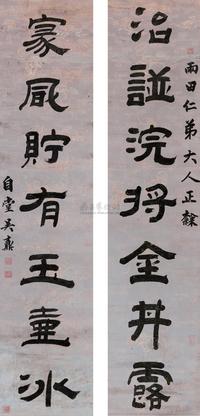 雨田仁弟大人正隸
治譜浣將金井露
家風貯有玉壺冰
自堂吳